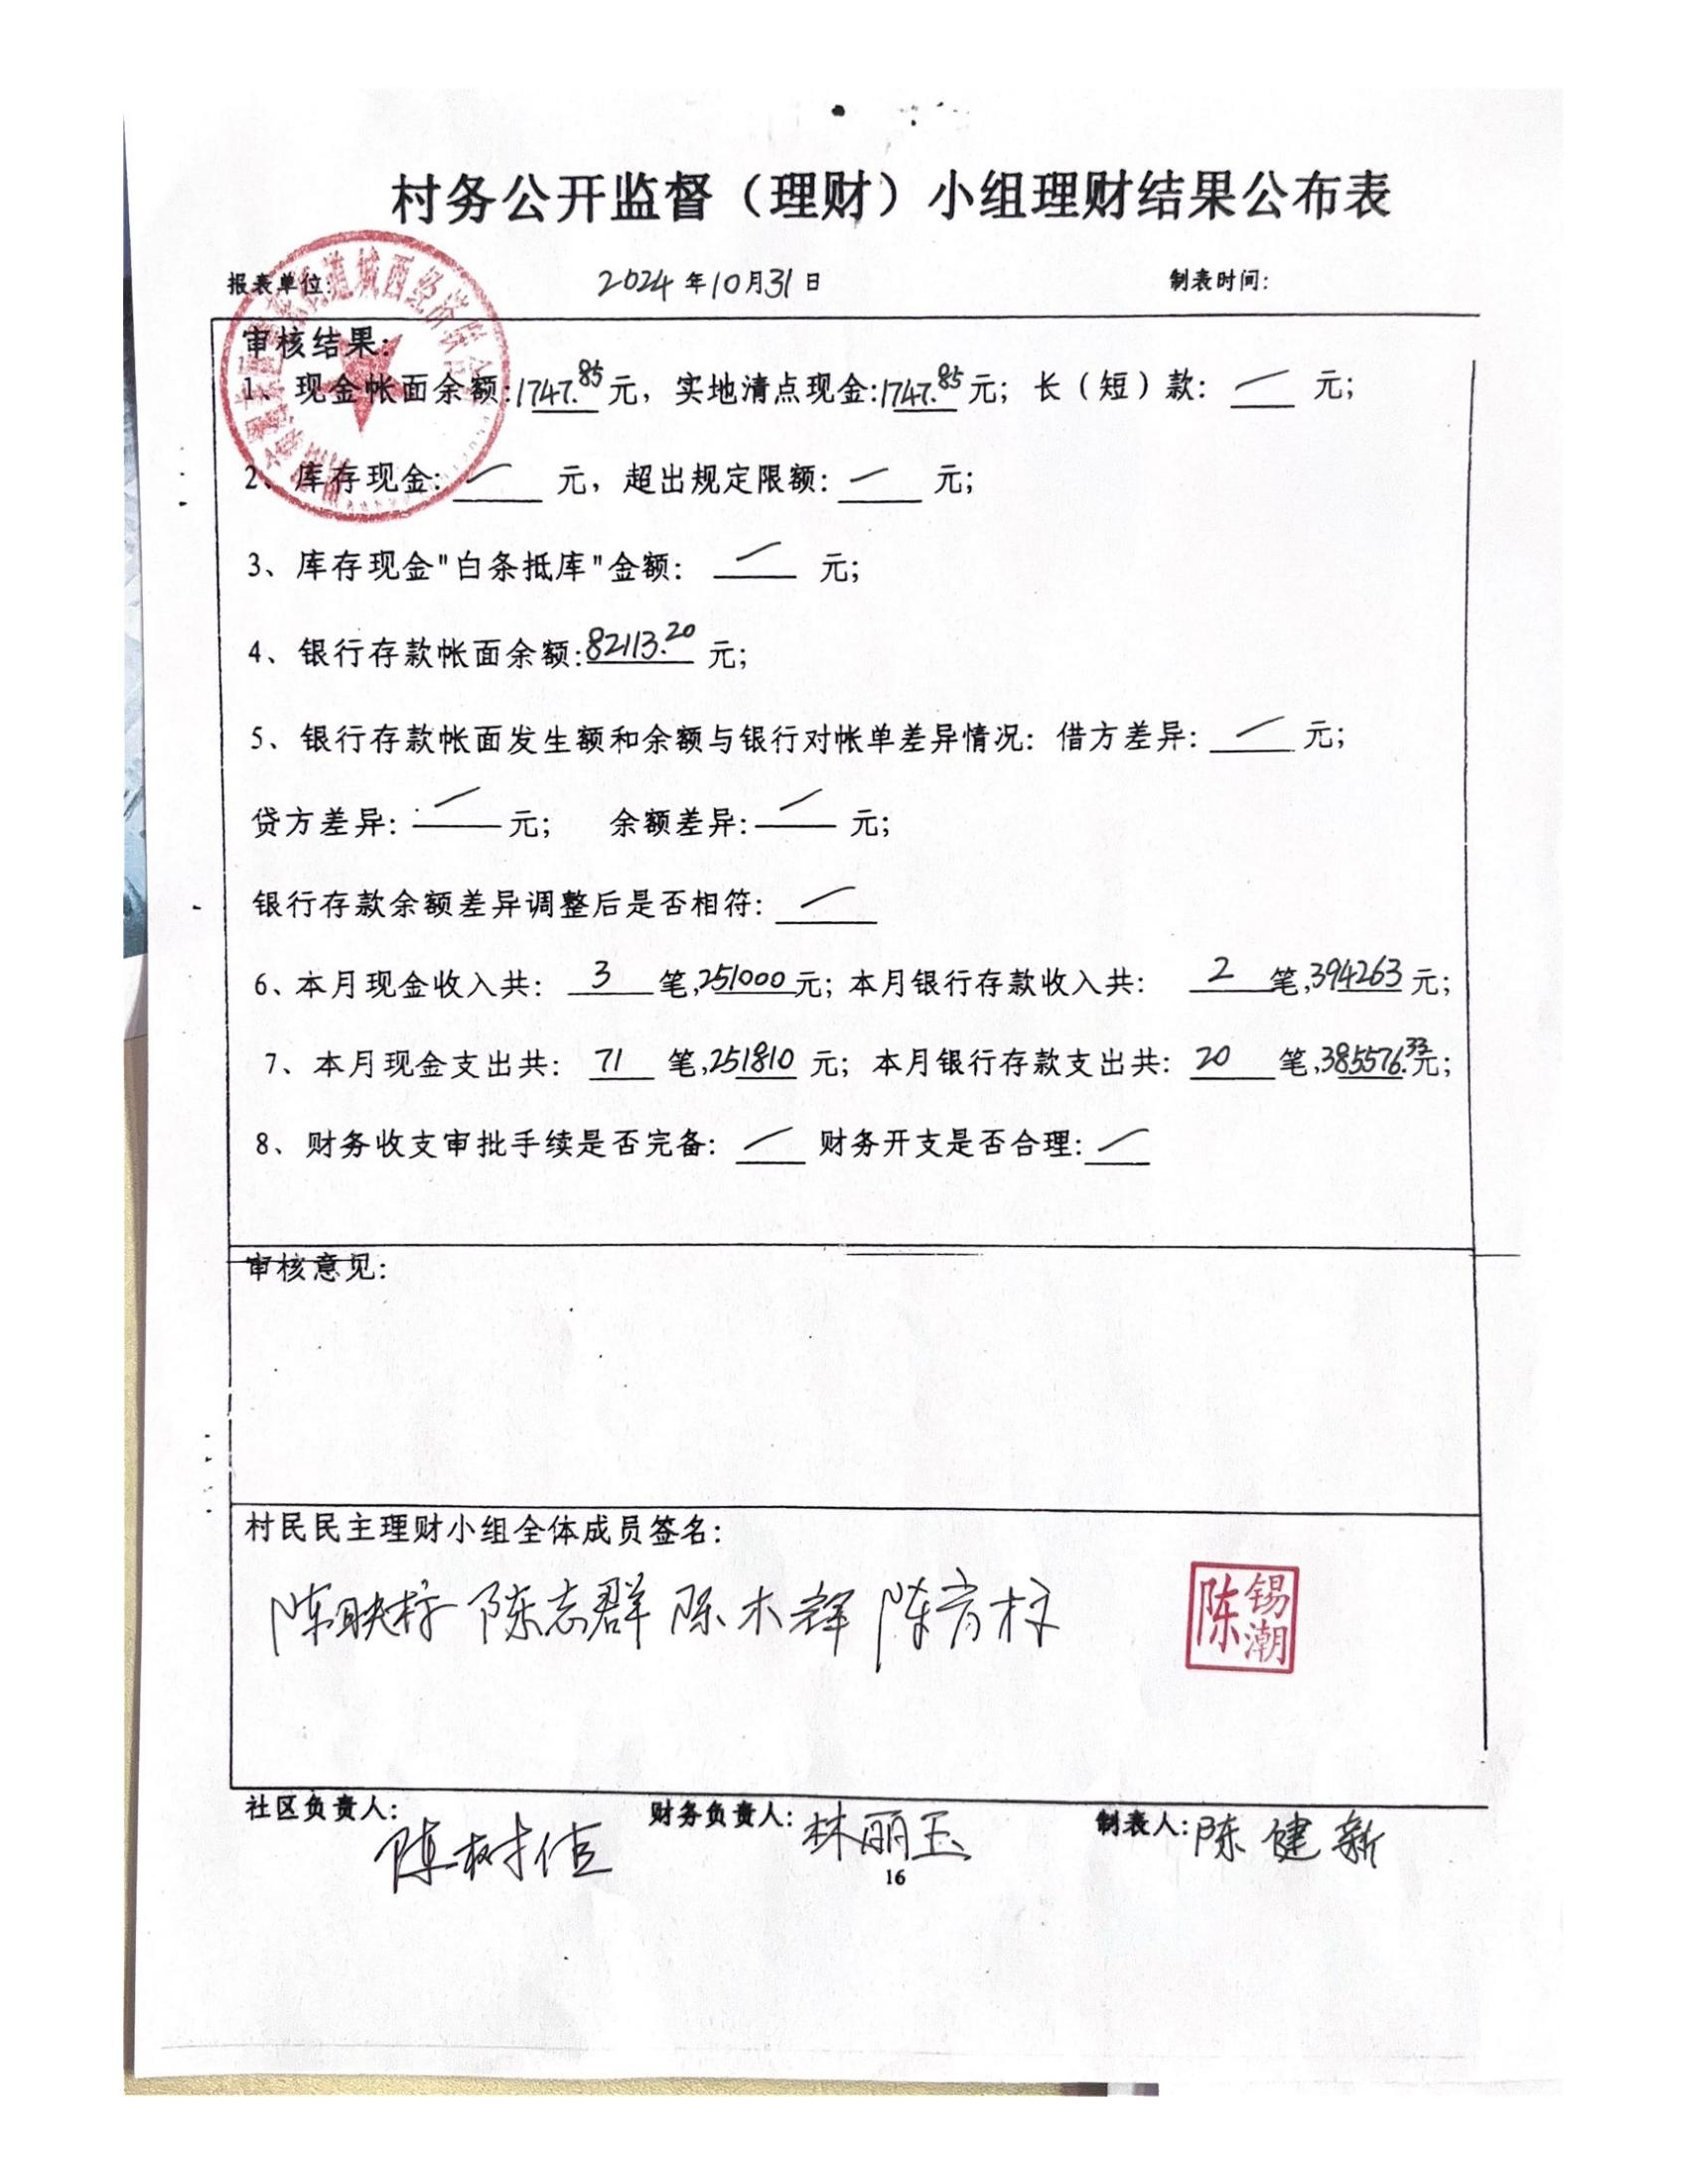 村务公开监督（理财）小组理财结果公布表
报表单位: 2024年10月31日 制表时间:
道城西经济
审核结果:
1、现金帐面余额:1747.85元，实地清点现金:1747.85元；长（短）款: / 元；
2、库存现金: / 元，超出规定限额: / 元；
3、库存现金"白条抵库"金额: / 元；
4、银行存款帐面余额:82113.20元；
5、银行存款帐面发生额和余额与银行对帐单差异情况: 借方差异: / 元；
贷方差异: / 元； 余额差异: / 元；
银行存款余额差异调整后是否相符: /
6、本月现金收入共: 3 笔,251000元；本月银行存款收入共: 2 笔,394263元；
7、本月现金支出共: 71 笔,251810元；本月银行存款支出共: 20 笔,385576.33元；
8、财务收支审批手续是否完备: / 财务开支是否合理: /
审核意见:
村民民主理财小组全体成员签名:
陈志群 陈木辉 陈锡潮
社区负责人: 陈树 财务负责人: 林丽玉 制表人: 陈健新
16